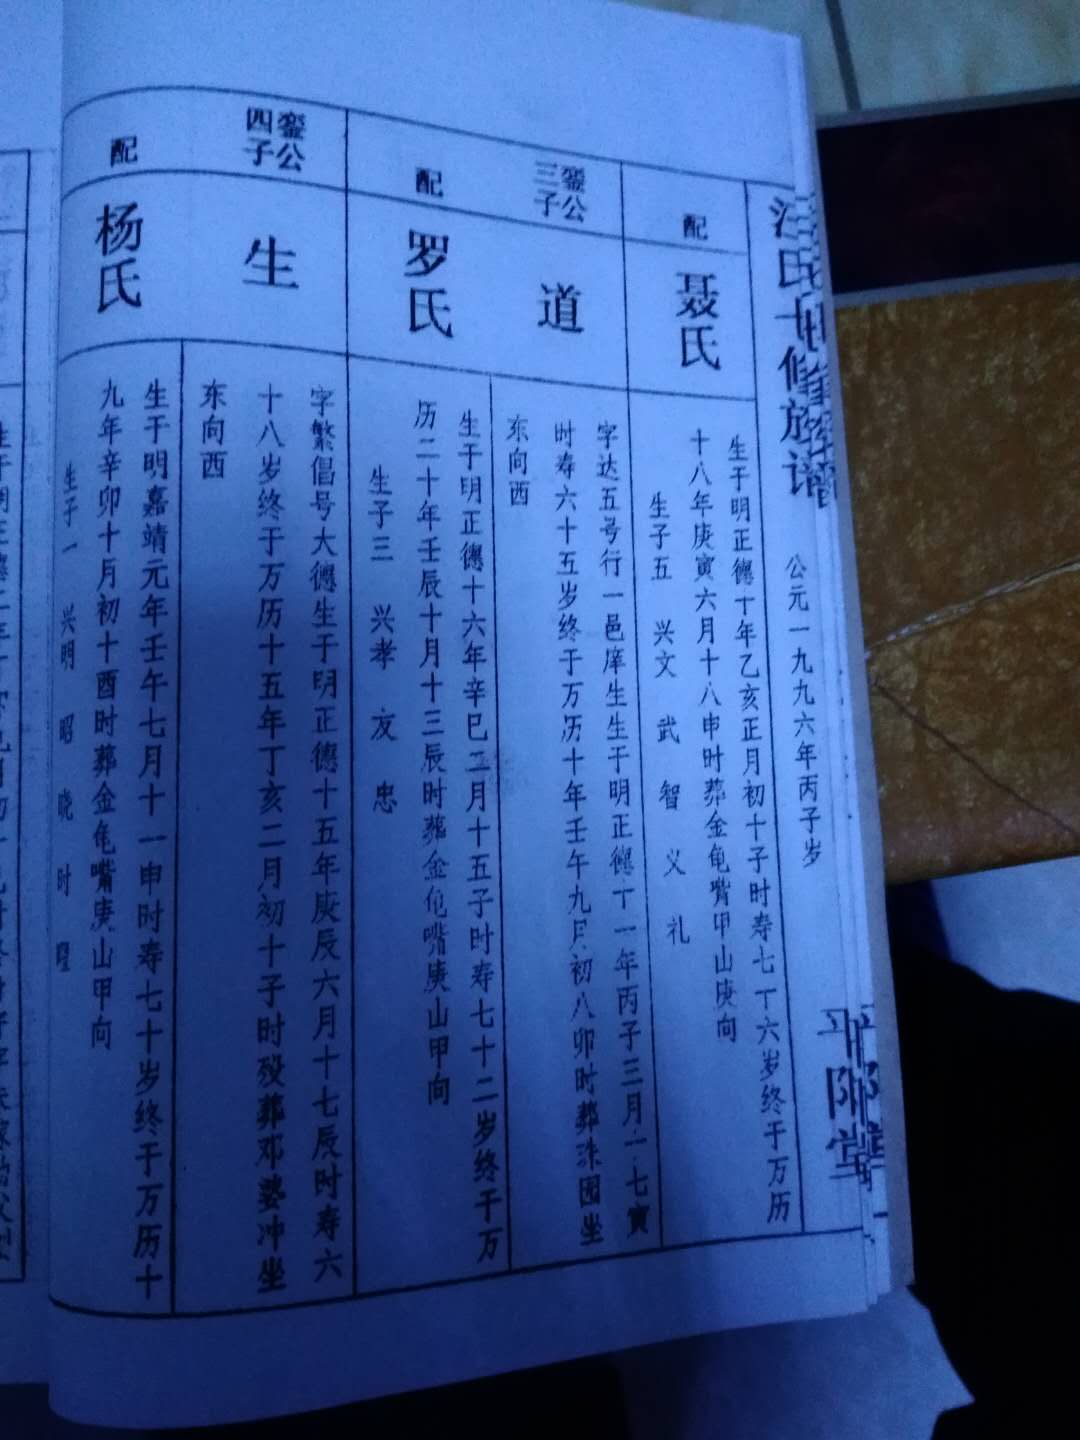 汪氏十修族谱 公元一九九六年丙子岁 平阳堂
配
聂氏
生于明正德十年乙亥正月初十子时寿七十六岁终于万历
十八年庚寅六月十八申时葬金龟嘴甲山庚向
生子五 兴文 武 智 义 礼
銮公
三子
道
字达五号行一邑庠生生于明正德十一年丙子三月一七寅
时寿六十五岁终于万历十年壬午九月初八卯时葬洙园坐
东向西
配
罗氏
生于明正德十六年辛巳二月十五子时寿七十二岁终于万
历二十年壬辰十月十三辰时葬金龟嘴庚山甲向
生子三 兴孝 友 忠
銮公
四子
生
字繁倡号大德生于明正德十五年庚辰六月十七辰时寿六
十八岁终于万历十五年丁亥二月初十子时殁葬邓婆冲坐
东向西
配
杨氏
生于明嘉靖元年壬午七月十一申时寿七十岁终于万历十
九年辛卯十月初十酉时葬金龟嘴庚山甲向
生子一 兴明 昭 晓 时